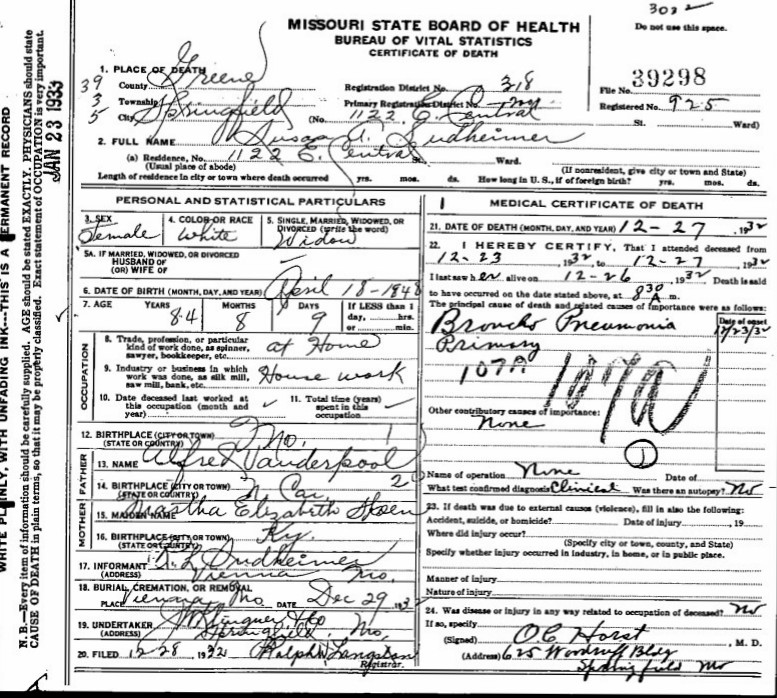 3022
MISSOURI STATE BOARD OF HEALTH
BUREAU OF VITAL STATISTICS
CERTIFICATE OF DEATH
Do not use this space.
1. PLACE OF DEATH
County Greene
Registration District No. 318
File No. 39298
Township
Primary Registration District No.
Registered No. 925
City Springfield (No. 1122 E. Central St. Ward)
39
3
5
2. FULL NAME Susan A. Sudheimer
(a) Residence, No. 1122 E. Central St. Ward.
(Usual place of abode) (If nonresident, give city or town and State)
Length of residence in city or town where death occurred yrs. mos. ds. How long in U. S., if of foreign birth? yrs. mos. ds.
PERSONAL AND STATISTICAL PARTICULARS
3. SEX Female
4. COLOR OR RACE White
5. SINGLE, MARRIED, WIDOWED, OR DIVORCED (write the word) Widow
5A. IF MARRIED, WIDOWED, OR DIVORCED
HUSBAND OF
(OR) WIFE OF
6. DATE OF BIRTH (MONTH, DAY, AND YEAR) April 18-1848
7. AGE YEARS 84 MONTHS 8 DAYS 9 If LESS than 1 day, ......hrs. or ......min.
OCCUPATION
8. Trade, profession, or particular kind of work done, as spinner, sawyer, bookkeeper, etc. at Home
9. Industry or business in which work was done, as silk mill, saw mill, bank, etc. House work
10. Date deceased last worked at this occupation (month and year)
11. Total time (years) spent in this occupation
12. BIRTHPLACE (CITY OR TOWN)
(STATE OR COUNTRY) Mo.
FATHER
13. NAME Alfred Vanderpool
14. BIRTHPLACE (CITY OR TOWN)
(STATE OR COUNTRY) N. Car.
MOTHER
15. MAIDEN NAME Martha Elizabeth
16. BIRTHPLACE (CITY OR TOWN)
(STATE OR COUNTRY) Ky.
17. INFORMANT Sudheimer
(ADDRESS) Vienna Mo.
18. BURIAL, CREMATION, OR REMOVAL
PLACE Vienna Mo DATE Dec 29 1932
19. UNDERTAKER
(ADDRESS) Springfield, Mo,
20. FILED 12-28, 1932 Ralph Langston
Registrar.
MEDICAL CERTIFICATE OF DEATH
21. DATE OF DEATH (MONTH, DAY, AND YEAR) 12-27, 1932
22. I HEREBY CERTIFY, That I attended deceased from
12-23 1932, to 12-27, 1932
I last saw her alive on 12-26, 1932 Death is said
to have occurred on the date stated above, at 830 A m.
The principal cause of death and related causes of importance were as follows:
Date of onset
Broncho Pneumonia 12/23/32
Primary
107A 107A
Other contributory causes of importance:
None
1
Name of operation None Date of
What test confirmed diagnosis Clinical Was there an autopsy? No
23. If death was due to external causes (violence), fill in also the following:
Accident, suicide, or homicide? Date of injury , 19
Where did injury occur?
(Specify city or town, county, and State)
Specify whether injury occurred in industry, in home, or in public place.
Manner of injury
Nature of injury
24. Was disease or injury in any way related to occupation of deceased? No
If so, specify
(Signed) O C Horst, M. D.
(Address) 625 Woodruff Bldg
Springfield Mo
WHITE PLAINLY, WITH UNFADING INK---THIS IS A PERMANENT RECORD
N. B.—Every item of information should be carefully supplied. AGE should be stated EXACTLY. PHYSICIANS should state
CAUSE OF DEATH in plain terms, so that it may be properly classified. Exact statement of OCCUPATION is very important.
JAN 23 1933